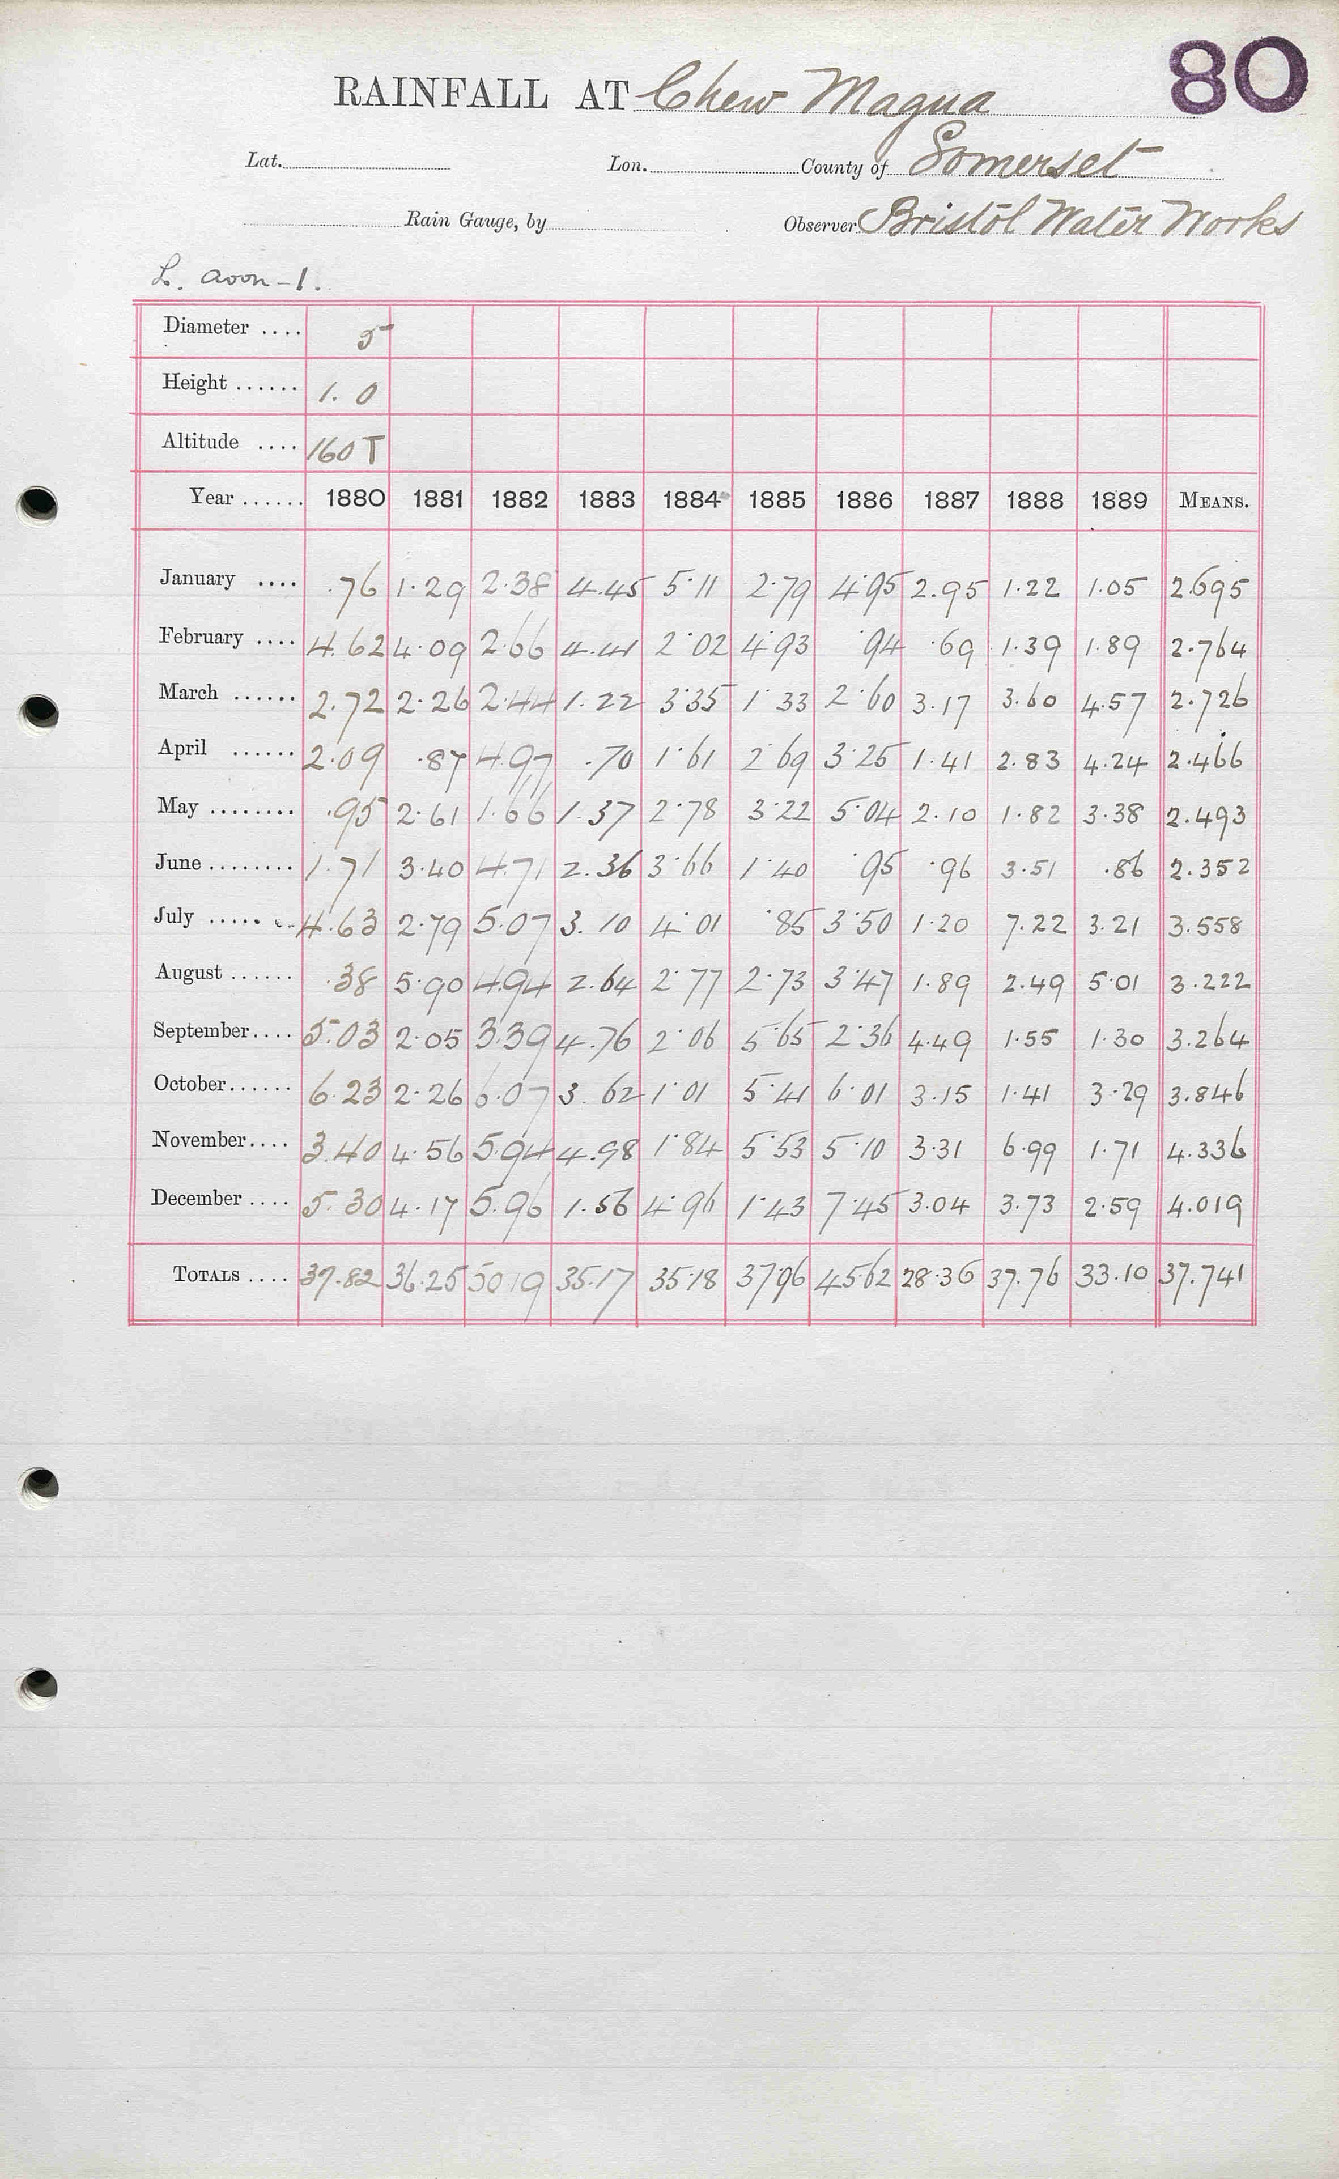 80
RAINFALL AT Chew Magna
Lat. Lon. County of Somerset
Rain Gauge, by Observer Bristol Water Works
L. Avon-1.
Diameter .... 5
Height ...... 1. 0
Altitude .... 160 T
Year ...... 1880 1881 1882 1883 1884 1885 1886 1887 1888 1889 MEANS.
January .... .76 1.29 2.38 4.45 5.11 2.79 4.95 2.95 1.22 1.05 2.695
February .... 4.62 4.09 2.66 4.41 2.02 4.93 .94 .69 1.39 1.89 2.764
March ...... 2.72 2.26 2.44 1.22 3.35 1.33 2.60 3.17 3.60 4.57 2.726
April ...... 2.09 .87 4.97 .70 1.61 2.69 3.25 1.41 2.83 4.24 2.466
May ........ .95 2.61 1.66 1.37 2.78 3.22 5.04 2.10 1.82 3.38 2.493
June ........ 1.71 3.40 4.71 2.36 3.66 1.40 .95 .96 3.51 .86 2.352
July ...... 4.63 2.79 5.07 3.10 4.01 .85 3.50 1.20 7.22 3.21 3.558
August ...... .38 5.90 4.94 2.64 2.77 2.73 3.47 1.89 2.49 5.01 3.222
September.... 5.03 2.05 3.39 4.76 2.06 5.65 2.36 4.49 1.55 1.30 3.264
October...... 6.23 2.26 6.07 3.62 1.01 5.41 6.01 3.15 1.41 3.29 3.846
November.... 3.40 4.56 5.94 4.98 1.84 5.53 5.10 3.31 6.99 1.71 4.336
December .... 5.30 4.17 5.96 1.56 4.96 1.43 7.45 3.04 3.73 2.59 4.019
TOTALS .... 37.82 36.25 50 19 35.17 35.18 37 96 45.62 28.36 37.76 33.10 37.741